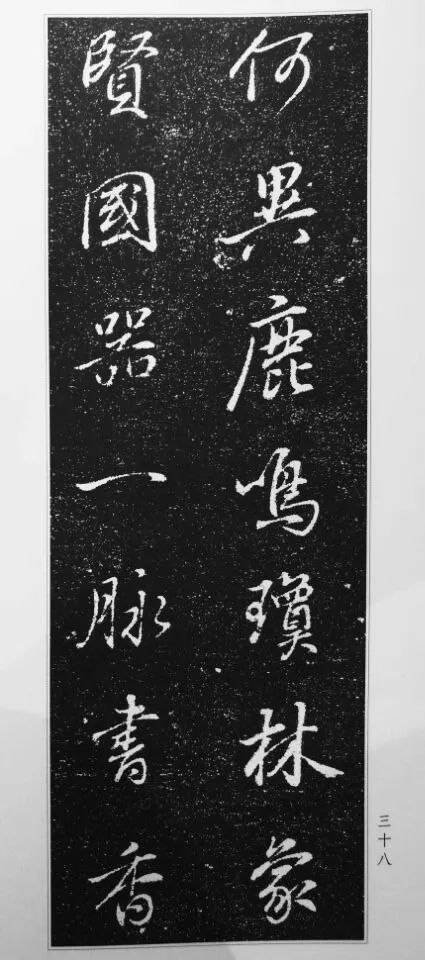 何異鹿鳴瓊林象
賢國器一脉書香
三十八